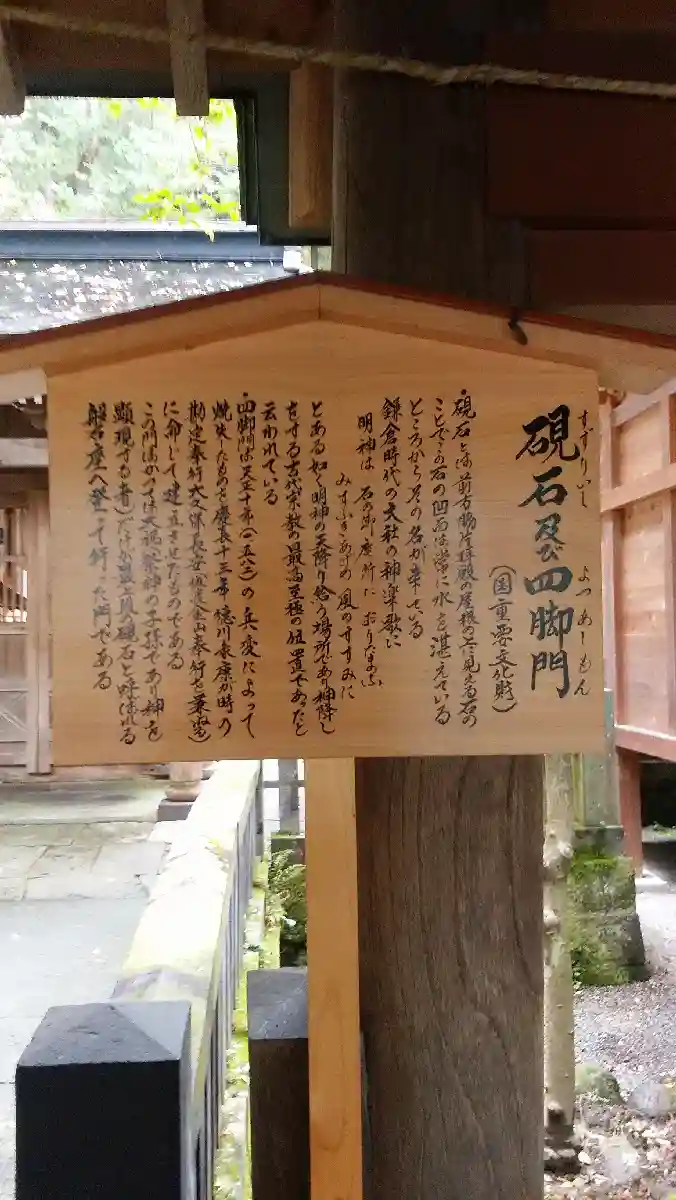 硯石及び四脚門
すずりいし
よつあしもん
(国・重要文化財)
・硯石とは前方脇片拝殿の屋根の上に見える石の
ことでこの石の凹面は常に水を湛えている
ところからその名が来ている
鎌倉時代の大社の神楽歌に
明神は 石の御座所に おりたまふ
みすふきあげの 風のすすみに
とある如く明神の天降り給う場所であり神降し
をする古代宗教の最高至極の位置であったと
云われている
・四脚門は天正十年(一五八二)の兵変によって
焼失したものを慶長十三年徳川家康が時の
勘定奉行大久保長安(佐渡金山奉行を兼ねる)
に命じて建立させたものである
この門はかつては大祝(祭神の子孫であり神を
顕現する者)だけが最上段の硯石と呼ばれる
磐石座へ登って行った門である